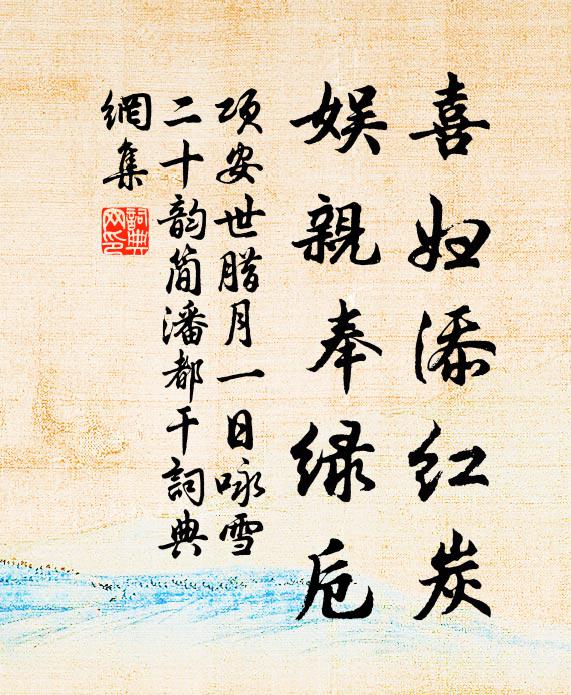 喜妇添红炭
娱親奉绿卮
项安世腊月一日咏雪
二十韵简潘都干詞典
網集
詞典网印